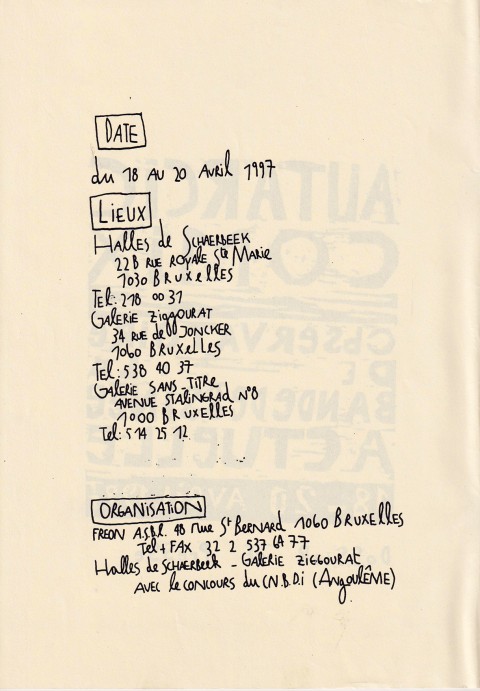 DATE
du 18 AU 20 AVRIL 1997
LIEUX
HALLES de SCHAERBEEK
22B RUE ROYALE Ste MARIE
1030 BRUXELLES
Tel: 218 00 31
GALERIE ZIGGOURAT
34 RUE de JONCKER
1060 BRUXELLES
Tel: 538 40 37
GALERIE SANS-TITRE
AVENUE STALINGRAD N°8
1000 BRUXELLES
Tel: 514 25 12
ORGANISATION
FREON A.S.B.L. 48 rue St BERNARD 1060 BRUXELLES
Tel + FAX 32 2 537 67 77
Halles de SCHAERBEEK - GALERIE ZIGGOURAT
AVEC le CONCOURS du C.N.B.D.i (ANGOULÊME)